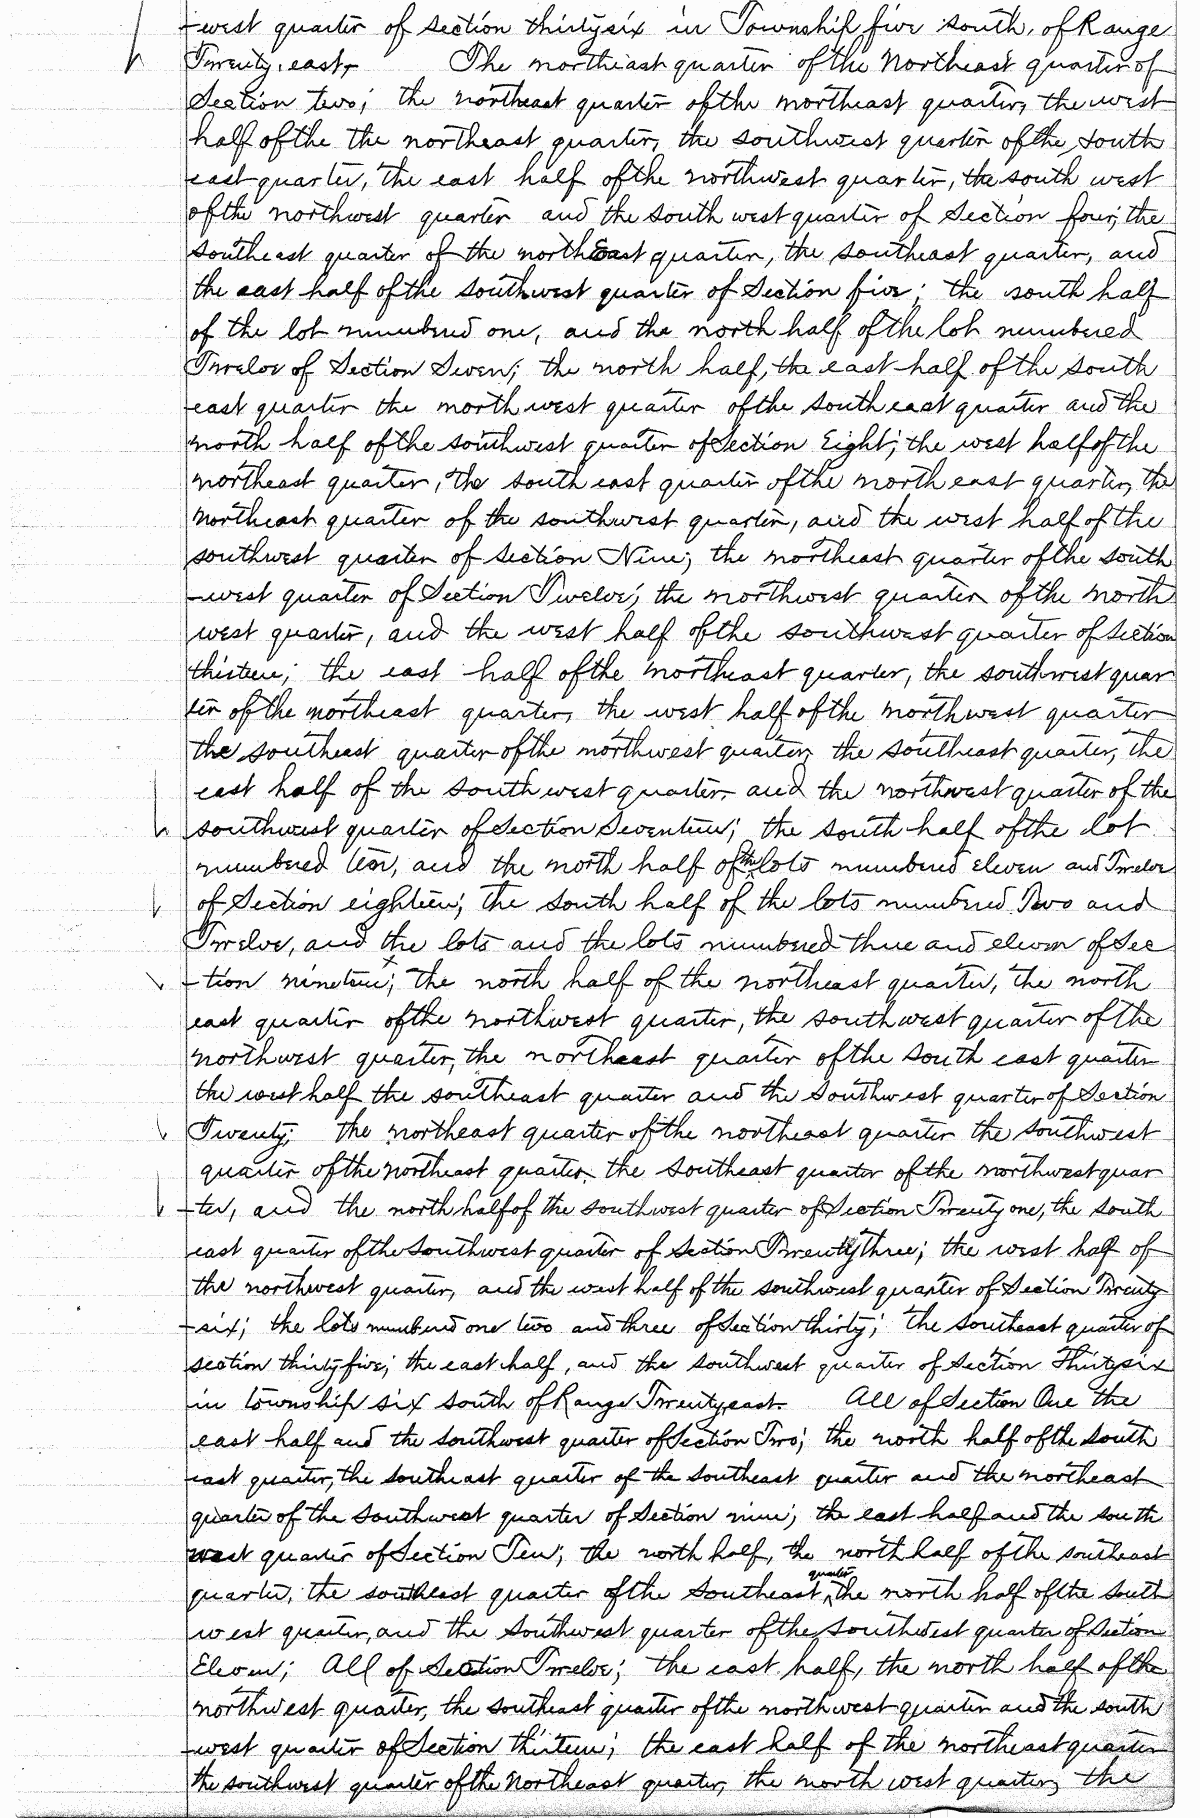 -west quarter of section thirtysix in Township five south, of Range
Twenty, east, The northeast quarter of the Northeast quarter of
Section two; the northeast quarter of the northeast quarter, the west
half of the the northeast quarter, the southwest quarter of the South
east quarter, the east half of the northwest quarter, the south west
of the northwest quarter and the south west quarter of Section four; the
southeast quarter of the northeast quarter, the southeast quarter, and
the east half of the southwest quarter of Section five; the south half
of the lot numbered one, and the north half of the lot numbered
Twelve of Section Seven; the north half, the east half of the south
east quarter the north west quarter of the south east quarter and the
north half of the southwest quarter of Section Eight; the west half of the
northeast quarter, the south east quarter of the north east quarter, the
Northeast quarter of the southwest quarter, and the west half of the
southwest quarter of Section Nine; the northeast quarter of the south
-west quarter of Section Twelve; the northwest quarter of the north
west quarter, and the west half of the southwest quarter of Section
thirteen; the east half of the northeast quarter, the southwest quar
ter of the northeast quarter, the west half of the northwest quarter
the southeast quarter of the northwest quarter, the southeast quarter, the
east half of the south west quarter and the northwest quarter of the
southwest quarter of Section Seventeen; the south half of the lot
numbered ten, and the north half of the lots numbered eleven and Twelve
of Section eighteen; the south half of the lots numbered Two and
Twelve, and the lots and the lots numbered three and eleven of Sec
-tion nineteen; the north half of the northeast quarter, the north
east quarter of the northwest quarter, the southwest quarter of the
northwest quarter, the northeast quarter of the South east quarter
the west half the southeast quarter and the Southwest quarter of Section
Twenty; the northeast quarter of the northeast quarter the southwest
quarter of the northeast quarter, the southeast quarter of the northwest quar
-ter, and the north half of the southwest quarter of Section Twenty one, the south
east quarter of the Southwest quarter of Section Twenty three; the west half of
the northwest quarter, and the west half of the southwest quarter of Section Twenty
-six; the lots numbered one two and three of Section thirty; the Southeast quarter of
section thirty five; the east half, and the southwest quarter of Section Thirtysix
in township six south of Range Twenty, east. All of Section One the
east half and the southwest quarter of Section Two; the north half of the south
east quarter, the southeast quarter of the southeast quarter and the northeast
quarter of the Southwest quarter of Section nine; the east half and the south
west quarter of Section Ten; the north half, the north half of the southeast
quarter, the southeast quarter of the Southeast quarter, the north half of the South
west quarter, and the Southwest quarter of the Southwest quarter of Section
Eleven; All of Section Twelve; the east half, the north half of the
northwest quarter, the southeast quarter of the northwest quarter and the south
-west quarter of Section thirteen; the east half of the northeast quarter
the southwest quarter of the Northeast quarter, the north west quarter, the